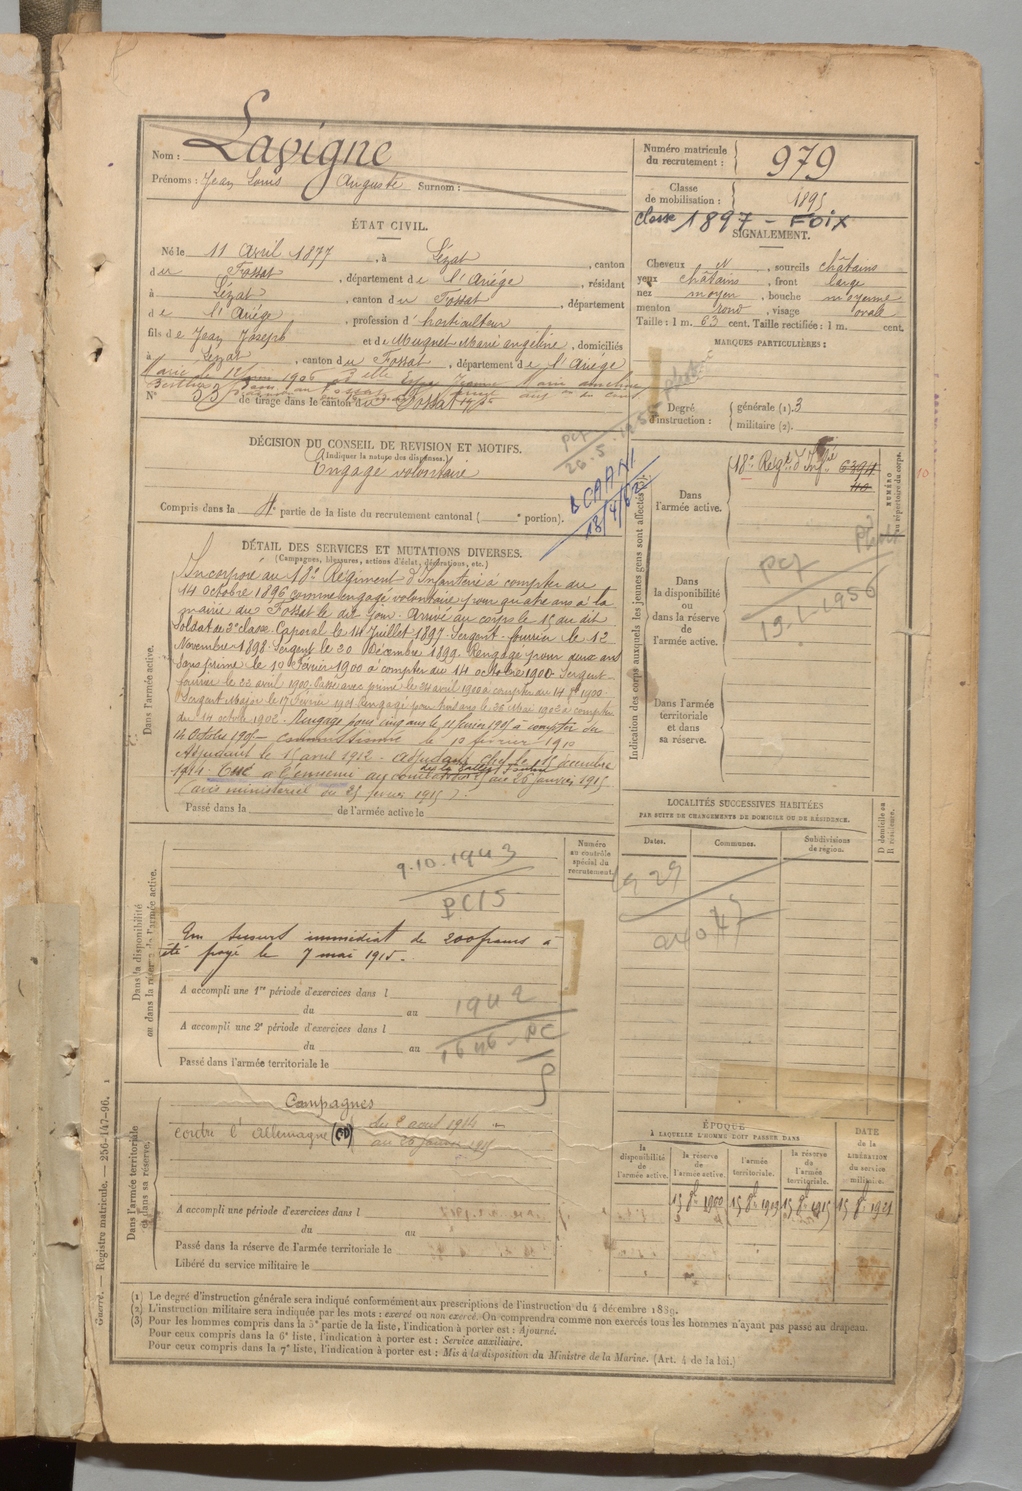 Nom : Lavigne
Prénoms : Jean Louis Auguste Surnom :
Numéro matricule du recrutement : 979
Classe de mobilisation : 1895
classe 1897 - FOIX
ÉTAT CIVIL.
Né le 11 Avril 1877, à Lézat, canton
du Fossat, département de l'Ariège, résidant
à Lézat, canton du Fossat, département
de l'Ariège, profession d'horticulteur
fils de Jean Joseph et de Muguet Marie angéline, domiciliés
à Lézat, canton du Fossat, département de l'Ariège
N° 53 de tirage dans le canton du Fossat
SIGNALEMENT.
Cheveux N, sourcils châtains
yeux châtains, front large
nez moyen, bouche moyenne
menton rond, visage ovale
Taille : 1 m. 63 cent. Taille rectifiée : 1 m. cent.
MARQUES PARTICULIÈRES :
Degré d'instruction : générale (1). 3
militaire (2).
DÉCISION DU CONSEIL DE REVISION ET MOTIFS.
(Indiquer la nature des dispenses.)
Engagé volontaire
Compris dans la 4e partie de la liste du recrutement cantonal ( e portion).
PCT
26.5.1955
BCAANI
18/4/62
DÉTAIL DES SERVICES ET MUTATIONS DIVERSES.
(Campagnes, blessures, actions d'éclat, décorations, etc.)
Dans l'armée active.
Incorporé au 18e Régiment d'Infanterie à compter du
14 octobre 1896 comme engagé volontaire pour quatre ans à la
mairie du Fossat le dit jour. Arrivé au corps le 15 du dit
Soldat de 2e classe. Caporal le 14 Juillet 1897. Sergent fourrier le 12
Novembre 1898. Sergent le 20 Décembre 1899. Rengagé pour deux ans
sans prime le 10 Février 1900 à compter du 14 octobre 1900. Sergent
fourrier le 23 avril 1900. Passé avec prime le 24 avril 1900 à compter du 14 1900.
Sergent Major le 17 Février 1901 Rengagé pour trois ans le 26 Mai 1902 à compter
du 14 octobre 1902. Rengagé pour cinq ans le 11 février 1905 à compter du
14 Octobre 1905 commissionné le 10 février 1910
Adjudant le 15 avril 1912 - adjudant chef le 15 décembre
1914. Tué à l'ennemi au combat du 26 janvier 1915
(avis ministériel du 25 février 1915).
Passé dans la de l'armée active le
Indication des corps auxquels les jeunes gens sont affectés
Dans l'armée active.
18e Régt d'Infie 6394
NUMÉRO au répertoire du corps.
Dans la disponibilité ou dans la réserve de l'armée active.
PCT
19.1.1956
Dans l'armée territoriale et dans sa réserve.
LOCALITÉS SUCCESSIVES HABITÉES
PAR SUITE DE CHANGEMENTS DE DOMICILE OU DE RÉSIDENCE.
Dates. Communes. Subdivisions de région. D domicile ou R résidence.
Numéro au contrôle spécial du recrutement.
Dans la disponibilité ou dans la réserve de l'armée active.
9.10.1943
PC15
Un secours immédiat de 200 francs a
été payé le 7 mai 1915.
A accompli une 1re période d'exercices dans l
du au
A accompli une 2e période d'exercices dans l
du au
Passé dans l'armée territoriale le
1942
1646 - PC
Dans l'armée territoriale et dans sa réserve.
Campagnes
contre l'Allemagne (CD) du 2 août 1914
au 26 janvier 1915
A accompli une période d'exercices dans l
du au
Passé dans la réserve de l'armée territoriale le
Libéré du service militaire le
ÉPOQUE
À LAQUELLE L'HOMME DOIT PASSER DANS
la disponibilité de l'armée active.
la réserve de l'armée active.
l'armée territoriale.
la réserve de l'armée territoriale.
DATE de la LIBÉRATION du service militaire.
15 8b 1900
15 8b
15 8b
15 8b 1921
(1) Le degré d'instruction générale sera indiqué conformément aux prescriptions de l'instruction du 4 décembre 1889.
(2) L'instruction militaire sera indiquée par les mots : exercé ou non exercé. On comprendra comme non exercés tous les hommes n'ayant pas passé au drapeau.
(3) Pour les hommes compris dans la 5e partie de la liste, l'indication à porter est : Ajourné.
Pour ceux compris dans la 6e liste, l'indication à porter est : Service auxiliaire.
Pour ceux compris dans la 7e liste, l'indication à porter est : Mis à la disposition du Ministre de la Marine. (Art. 4 de la loi.)
Guerre. — Registre matricule. — 256-147-96.